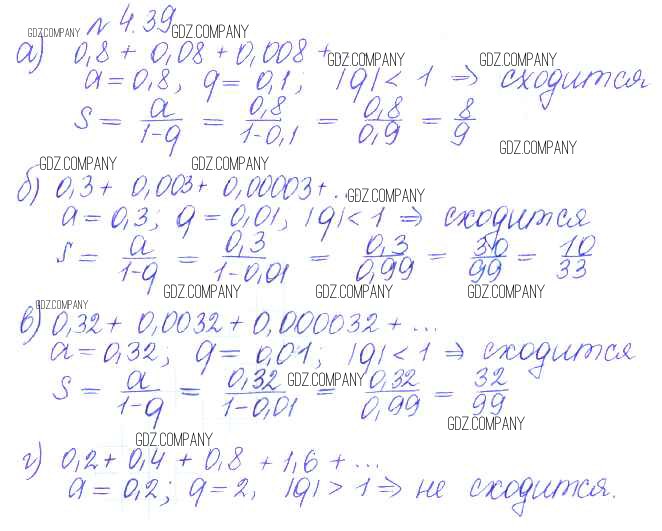 № 4.39 GDZ.COMPANY
GDZ.COMPANY
а) 0,8 + 0,08 + 0,008 + GDZ.COMPANY GDZ.COMPANY
a = 0,8, q = 0,1; |q| < 1 ⇒ сходится
S = a/(1-q) = 0,8/(1-0,1) = 0,8/0,9 = 8/9
GDZ.COMPANY
GDZ.COMPANY GDZ.COMPANY
б) 0,3 + 0,003 + 0,00003 + .. GDZ.COMPANY
a = 0,3; q = 0,01, |q| < 1 ⇒ сходится
S = a/(1-q) = 0,3/(1-0,01) = 0,3/0,99 = 30/99 = 10/33
GDZ.COMPANY GDZ.COMPANY GDZ.COMPANY
GDZ.COMPANY
в) 0,32 + 0,0032 + 0,000032 + ...
a = 0,32; q = 0,01; |q| < 1 ⇒ сходится
S = a/(1-q) = 0,32/(1-0,01) GDZ.COMPANY = 0,32/0,99 = 32/99
GDZ.COMPANY
GDZ.COMPANY
г) 0,2 + 0,4 + 0,8 + 1,6 + ...
a = 0,2; q = 2, |q| > 1 ⇒ не сходится.